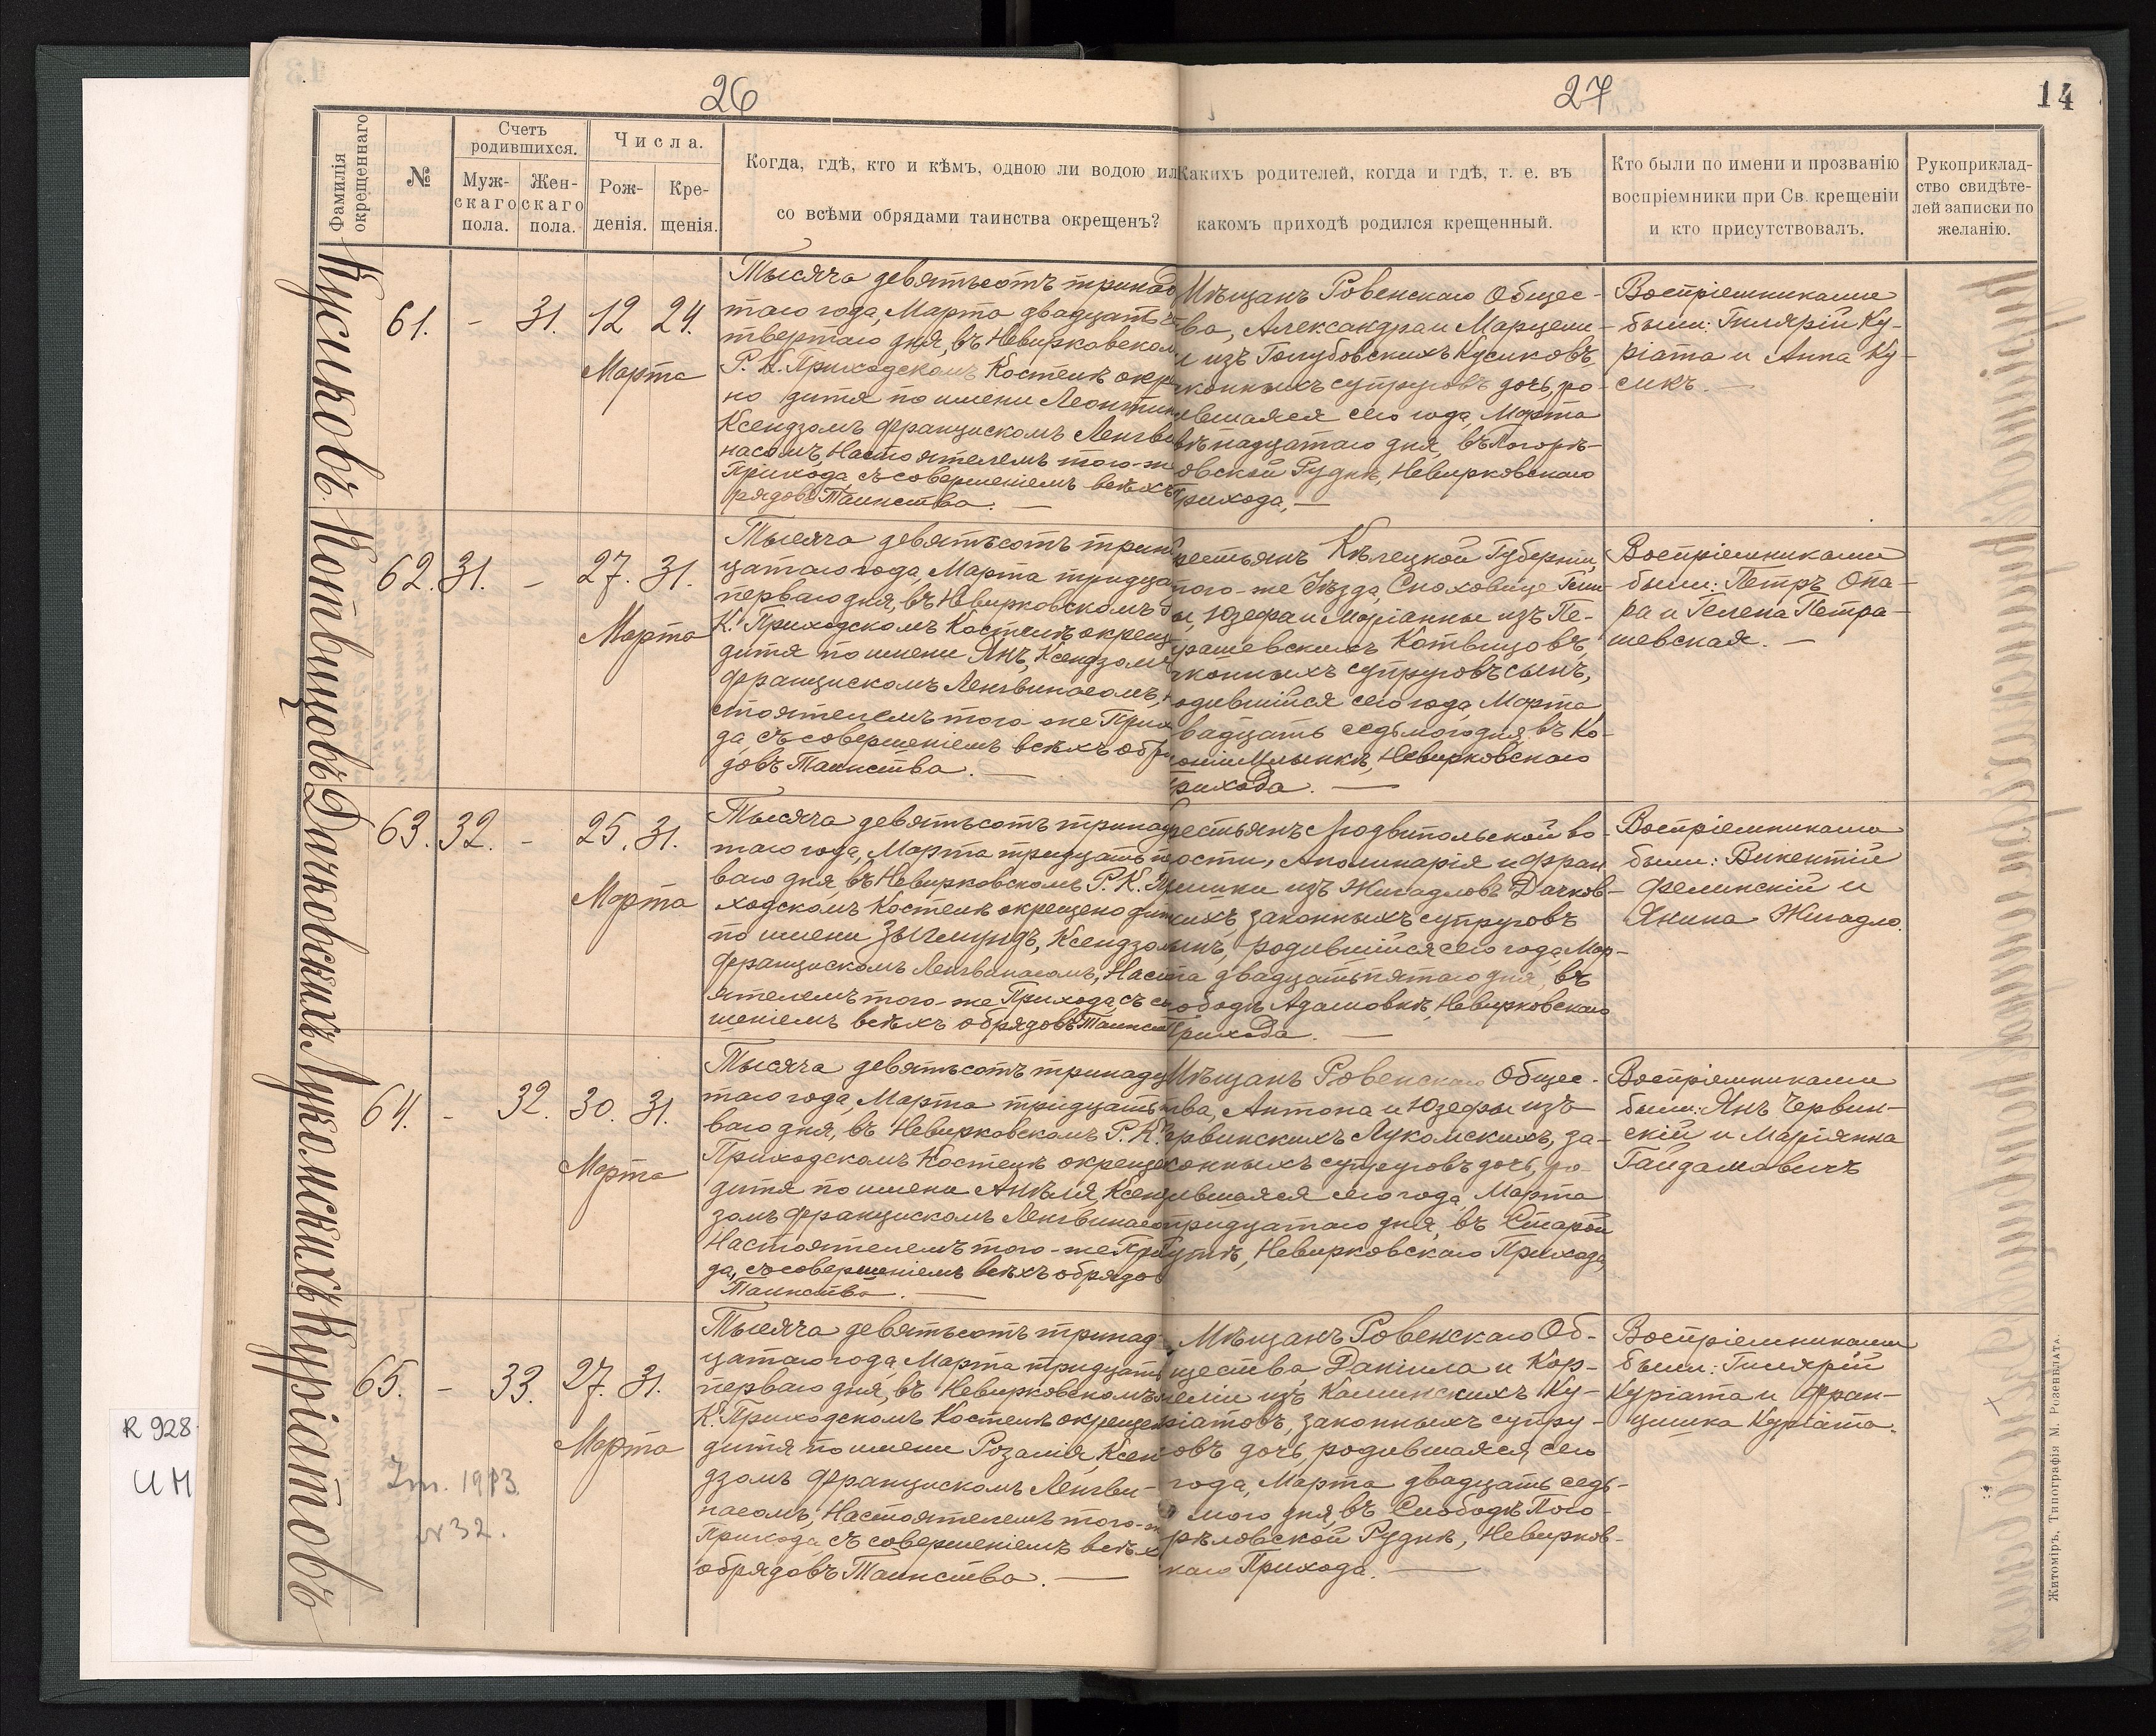 26
27
14
Фамилія окрещеннаго
№
Счетъ родившихся.
Муж-
скаго
пола.
Жен-
скаго
пола.
Числа.
Рож-
денія.
Кре-
щенія.
Когда, гдѣ, кто и кѣмъ, одною ли водою ил
со всѣми обрядами таинства окрещенъ?
Какихъ родителей, когда и гдѣ, т. е. въ
какомъ приходѣ родился крещенный.
Кто были по имени и прозванію
воспріемники при Св. крещеніи
и кто присутствовалъ.
Рукоприклад-
ство свидѣте-
лей записки по
желанію.
Кусиковъ
61. - 31. 12 24.
Марта
Тысяча девятьсотъ тринад
таго года, Марта двадцать че
твертаго дня, въ Невирковском
Р. К. Приходскомъ Костелѣ окре
но дитя по имени Леонтин
Ксендзомъ Францискомъ Ленгви
насомъ, Настоятелемъ того-же
Прихода, съ совершеніемъ всѣхъ
рядовъ Таинства. —
Мѣщанъ Ровенскаго Общес-
ва, Александра и Марцели-
и изъ Голубовскихъ Кусиковъ,
конныхъ супруговъ дочь, ро-
ившаяся сего года, Марта
надцатаго дня, въ Погорѣ-
овской Руднѣ, Невирковскаго
Прихода. —
Воспріемниками
были: Гилярій Ку-
ріата и Анна Ку-
сикъ. —
Котвицовъ
62. 31. - 27. 31.
Марта
Тысяча девятьсотъ трин
цатаго года, Марта тридца
перваго дня, въ Невирковскомъ
К. Приходскомъ Костелѣ окрещ
дитя по имени Янъ, Ксендзомъ
Францискомъ Ленгвинасомъ, Н
стоятелемъ того же Прихо
да, съ совершеніемъ всѣхъ обря
довъ Таинства. —
рестьянъ Кѣлецкой Губерніи,
того-же Уѣзда, Сноховице Гми-
ы, Юзефа и Маріанны изъ Пе-
рашевскихъ Котвицовъ,
конныхъ супруговъ сынъ,
одившійся сего года, Марта
вадцать седьмого дня, въ Ко-
оніи Млынкѣ, Невирковскаго
Прихода. —
Воспріемниками
были: Петръ Опа-
ра и Гелена Петра-
шевская. —
Дачковскихъ
63. 32. - 25. 31.
Марта
Тысяча девятьсотъ тринад
таго года, Марта тридцать п
ваго дня, въ Невирковскомъ Р. К. При
ходскомъ Костелѣ окрещено дит
по имени Зыгмундъ, Ксендзом
Францискомъ Ленгвинасомъ, Насто
ятелемъ того-же Прихода, съ со
шеніемъ всѣхъ обрядовъ Таинст
рестьянъ Людвипольской во-
ости, Аполинарія и Фран
ишки изъ Жигадловъ Дачков-
кихъ, законныхъ супруговъ
ынъ, родившійся сего года, Мар-
та двадцать пятаго дня, въ
ободѣ Адамовкѣ, Невирковскаго
Прихода. —
Воспріемниками
были: Викентій
Фелинскій и
Янина Жигадло.
Лукомскихъ
64. - 32. 30. 31.
Марта
Тысяча девятьсотъ тринадц
таго года, Марта тридцать
ваго дня, въ Невирковскомъ Р. К.
Приходскомъ Костелѣ окреще
дитя по имени Анѣля, Ксенд
зомъ Францискомъ Ленгвинасом
Настоятелемъ того-же При
да, съ совершеніемъ всѣхъ обрядов
Таинства. —
Мѣщанъ Ровенскаго Общес-
тва, Антона и Юзефы изъ
ервинскихъ Лукомскихъ, за-
конныхъ супруговъ дочь, ро-
ившаяся сего года, Марта
тридцатаго дня, въ Старой
утѣ, Невирковскаго Прихода,
Воспріемниками
были: Янъ Червин-
скій и Маріянна
Гайдамовичъ
Куріатовъ
65. - 33. 27. 31.
Марта
Тысяча девятьсотъ тринад
цатаго года, Марта тридцать
перваго дня, въ Невирковскомъ
К. Приходскомъ Костелѣ окрещен
дитя по имени Розалія, Ксен
дзомъ Францискомъ Ленгви-
насомъ, Настоятелемъ того-ж
Прихода, съ совершеніемъ всѣх
обрядовъ Таинства. —
Мѣщанъ Ровенскаго Об-
щества, Даніила и Кор-
неліи изъ Каминскихъ Ку-
ріатовъ, законныхъ супру-
овъ дочь, родившаяся сего
года, Марта двадцать седь-
мого дня, въ Слободѣ Пого-
рѣловской Руднѣ, Невирков-
скаго Прихода. —
Воспріемниками
были: Гилярій
Куріата и Фран-
цишка Куріата.
R 928
U M
Zm. 1983
nr 32.
Житоміръ, Типографія М. Розенблата.